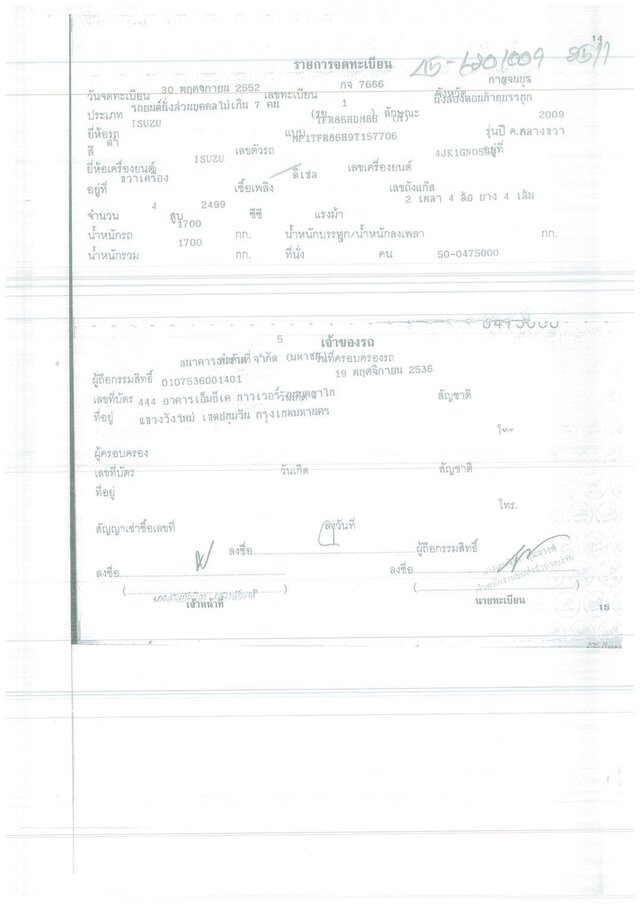 14
รายการจดทะเบียน
วันจดทะเบียน 30 พฤศจิกายน 2552 เลขทะเบียน กจ 7666 จังหวัด กาญจนบุรี
ประเภท รถยนต์นั่งส่วนบุคคลไม่เกิน 7 คน (รย. 1 ) ลักษณะ นั่งสองตอนท้ายบรรทุก
ยี่ห้อรถ ISUZU แบบ TFR86HDM8H (M) รุ่นปี ค.ศ. 2009
สี ดำ เลขตัวรถ MP1TFR86H9T157706 อยู่ที่ กลางขวา
ยี่ห้อเครื่องยนต์ ISUZU เลขเครื่องยนต์
อยู่ที่ ขวาเครื่อง เชื้อเพลิง ดีเซล เลขถังแก๊ส
จำนวน 4 สูบ 2499 ซีซี แรงม้า 2 เพลา 4 ล้อ ยาง 4 เส้น
น้ำหนักรถ 1700 กก. น้ำหนักบรรทุก/น้ำหนักลงเพลา กก.
น้ำหนักรวม 1700 กก. ที่นั่ง คน 50-0475000
5 เจ้าของรถ
ธนาคาร จำกัด (มหาชน) วันที่ครอบครองรถ
ผู้ถือกรรมสิทธิ์ 0107536001401 19 พฤศจิกายน 2536
เลขที่บัตร 444 อาคารเอ็มบีเค ทาวเวอร์ ถนนพญาไท วันเกิด สัญชาติ
ที่อยู่ แขวงวังใหม่ เขตปทุมวัน กรุงเทพมหานคร
โทร
ผู้ครอบครอง
เลขที่บัตร วันเกิด สัญชาติ
ที่อยู่
โทร.
สัญญาเช่าซื้อเลขที่ ลงวันที่
ลงชื่อ ผู้ถือกรรมสิทธิ์
ลงชื่อ ลงชื่อ
( ) ( )
เจ้าหน้าที่ นายทะเบียน
15